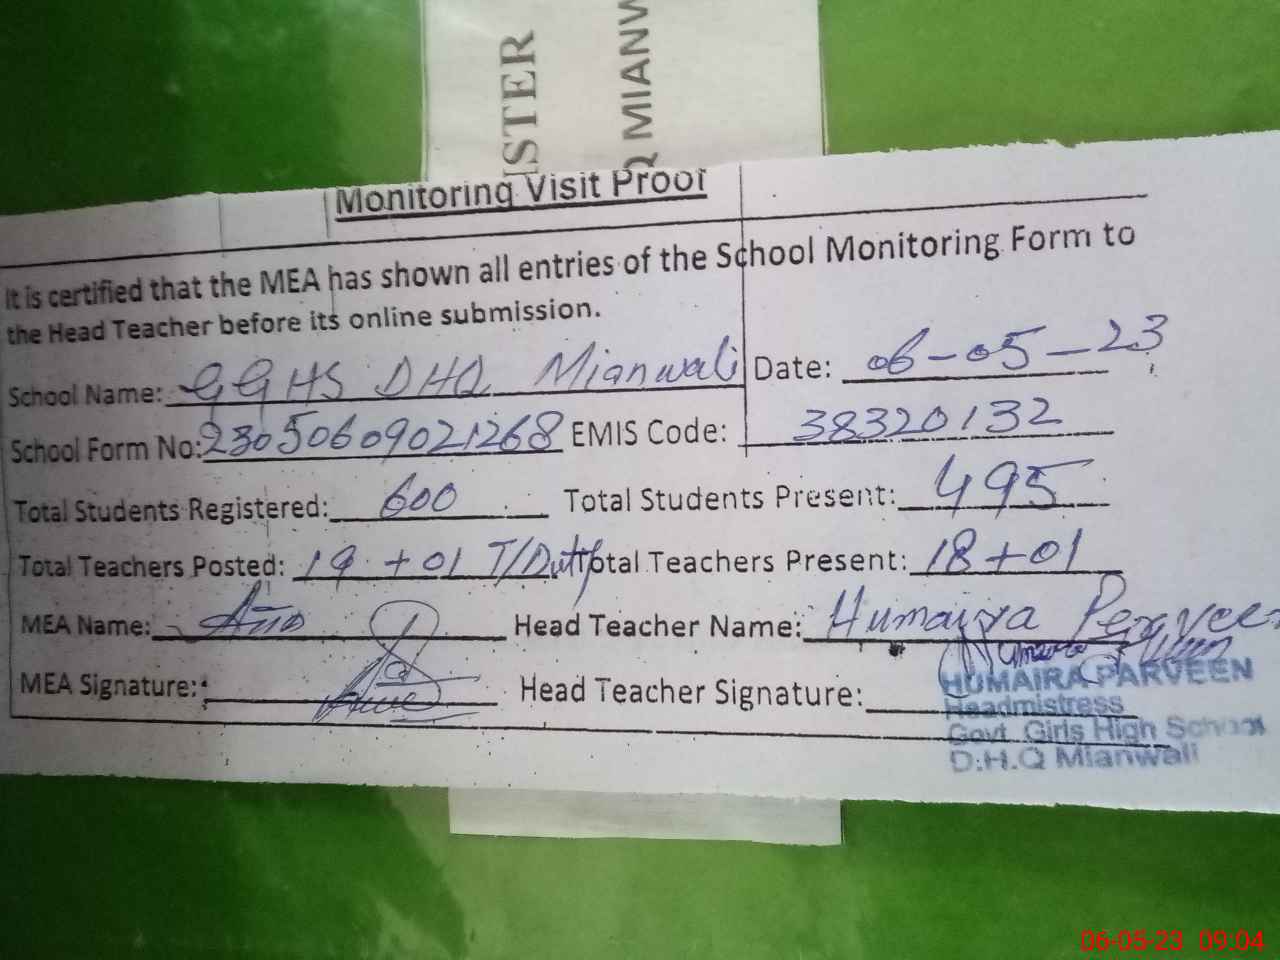 ISTER
Q MIANW
Monitoring Visit Proof
It is certified that the MEA has shown all entries of the School Monitoring Form to
the Head Teacher before its online submission.
School Name: GGHS DHQ Mianwali Date: 06-05-23
School Form No: 23050609021268 EMIS Code: 38320132
Total Students Registered: 600 Total Students Present: 495
Total Teachers Posted: 19 + 01 T/Duty Total Teachers Present: 18+01
MEA Name: Head Teacher Name: Humaira Perveen
MEA Signature: Head Teacher Signature:
HUMAIRA PARVEEN
Headmistress
Govt. Girls High School
D.H.Q Mianwali
06-05-23 09:04